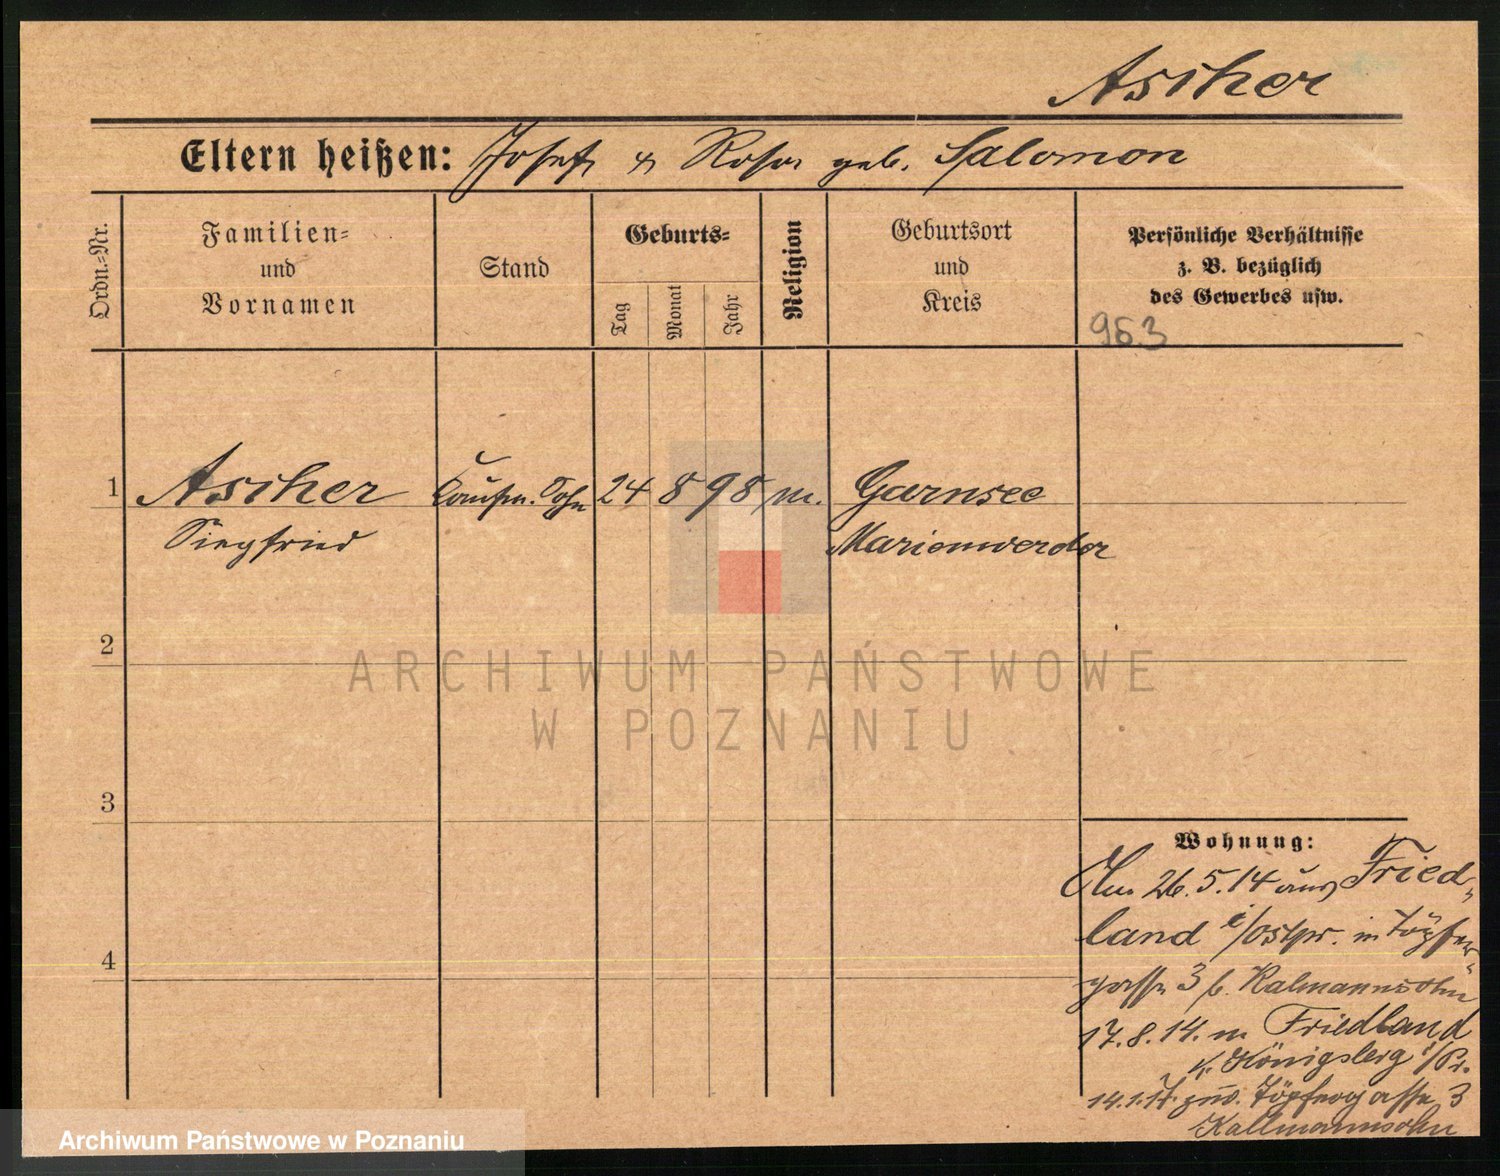 Ascher
Eltern heißen: Josef u Rosa geb. Salomon
Ordn.-Nr.
Familien-
und
Vornamen
Stand
Geburts-
Tag
Monat
Jahr
Religion
Geburtsort
und
Kreis
Persönliche Verhältnisse
z. B. bezüglich
des Gewerbes usw.
953
1 Ascher Kaufm. Sohn 24 8 98 m. Garnsee
Siegfried Marienwerder
2
ARCHIWUM PAŃSTWOWE
W POZNANIU
3
Wohnung:
26.5.14 aus Fried-
land i/Ostpr. in Töpfer-
4
gasse 3 b. Kalmannsohn
17.8.14. n. Friedland
K. Königsberg i/Pr.
14.1.17. zur. Töpfergasse 3
Kallmannsohn
Archiwum Państwowe w Poznaniu